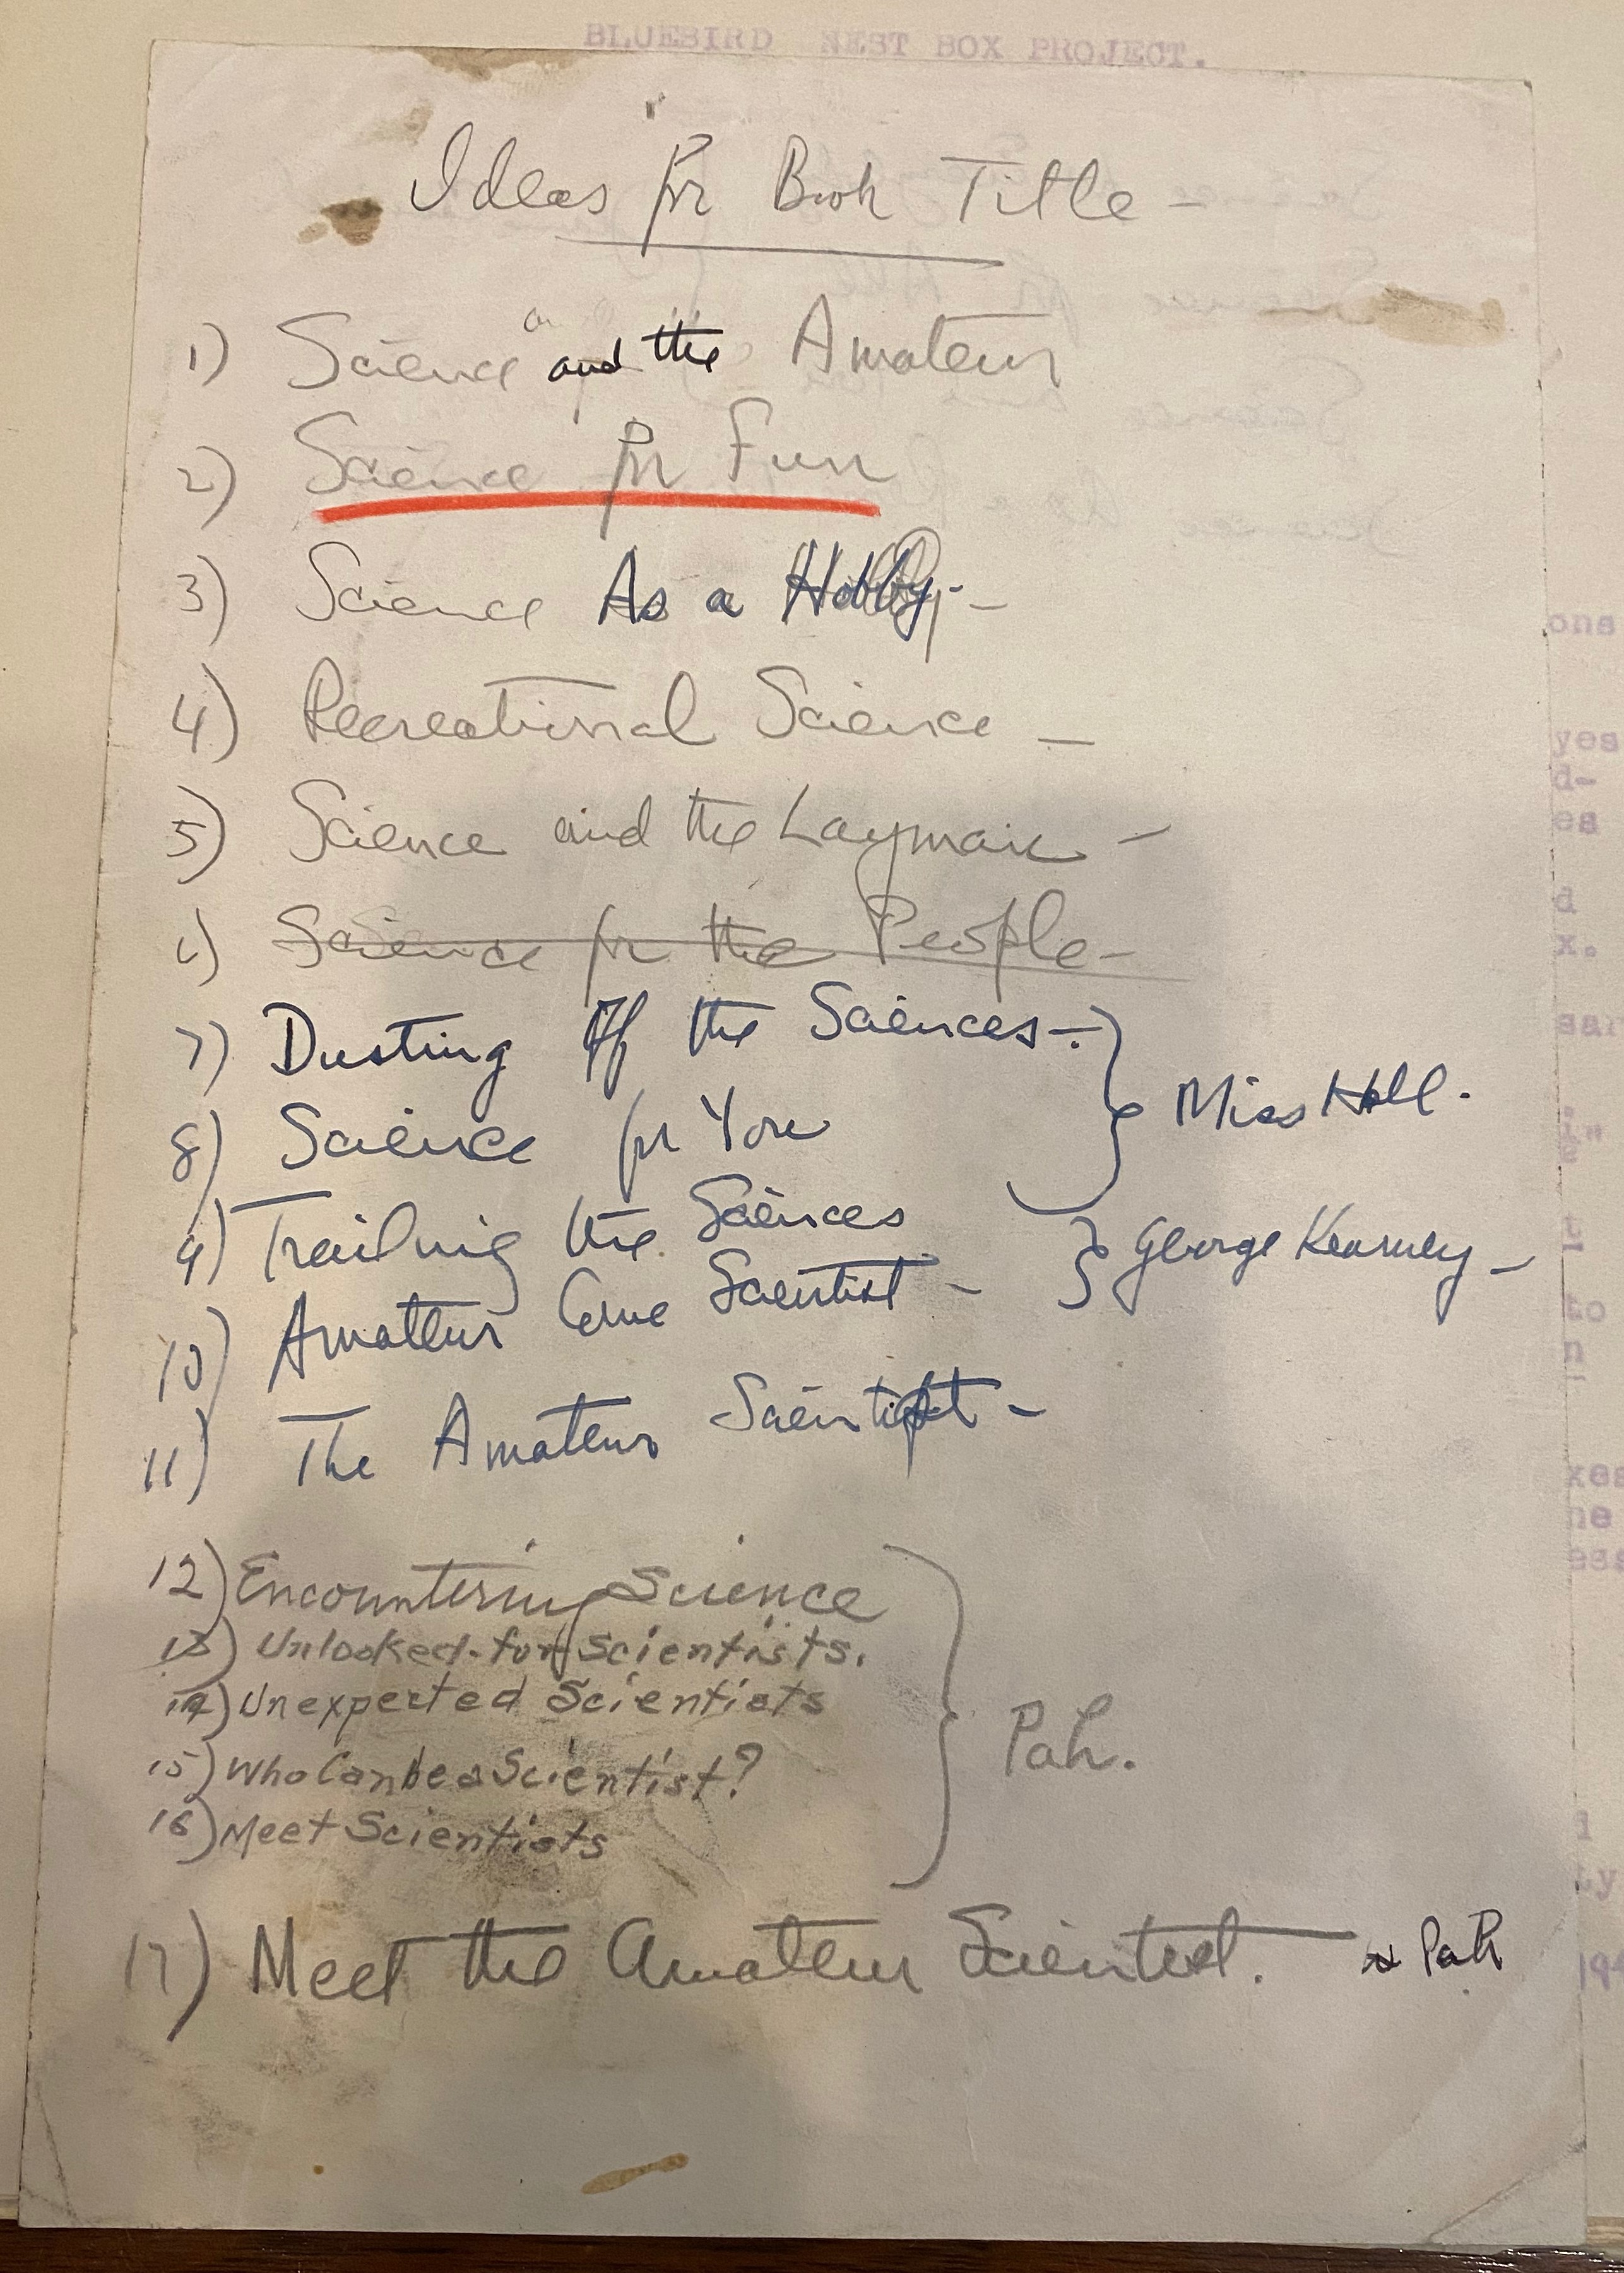 BLUEBIRD NEST BOX PROJECT.
Ideas for Book Title -
1) Science and the Amateur
2) Science for Fun
3) Science As a Hobby -
4) Recreational Science -
5) Science and the Layman -
6) Science for the People -
7) Dusting Off the Sciences -
8) Science for You
Miss Hall.
9) Trailing the Sciences
10) Amateur Scientist -
George Kearney -
11) The Amateur Scientist -
12) Encountering Science
13) Unlooked-for Scientists.
14) Unexpected Scientists
15) Who Can be a Scientist?
16) Meet Scientists
17) Meet the Amateur Scientist.
ons
yes
d-
es
d
x.
to
n
xes
ne
ess
ty